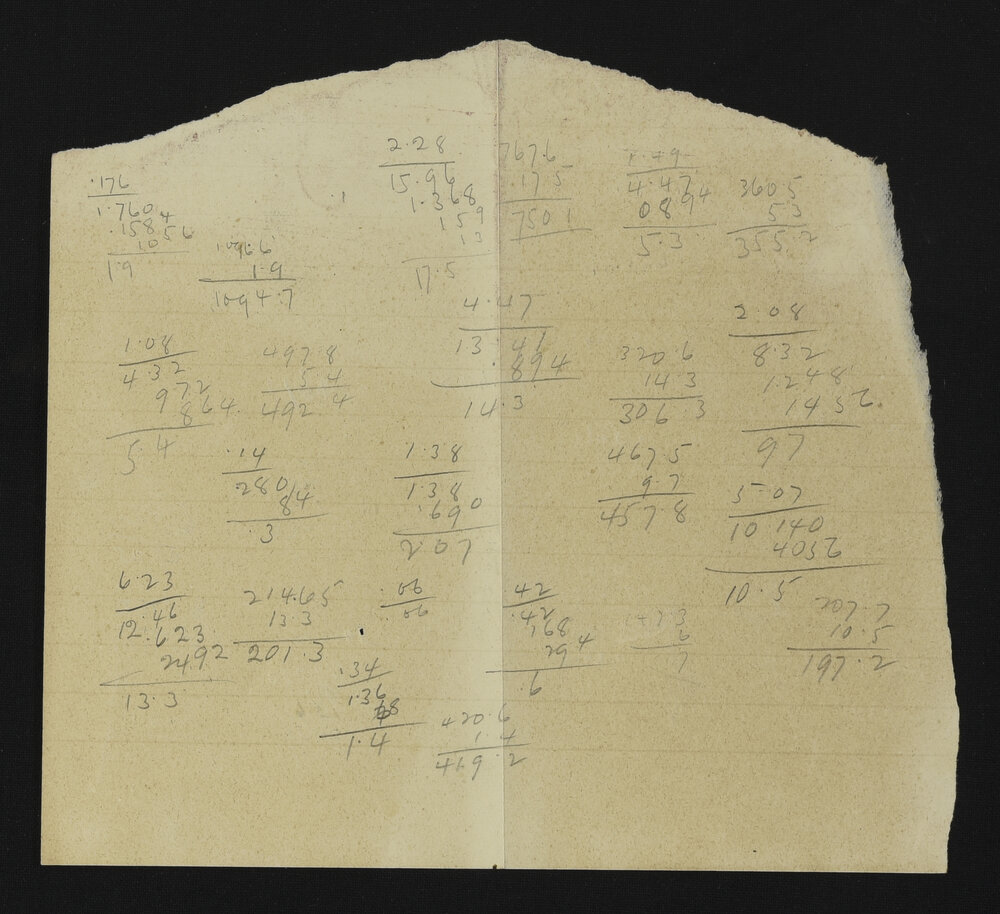 .176
1.760
.1584
1056
1.9
1096.6
1.9
1094.7
2.28
15.96
1.368
159
13
17.5
767.6
17.5
750.1
4.47
0894
5.3
360.5
5.3
355.2
1.08
4.32
972
864
5.4
497.8
5.4
492.4
4.47
13.41
.894
14.3
320.6
14.3
306.3
2.08
8.32
1.248
1456
9.7
.14
280
84
.3
1.38
1.38
.690
2.07
467.5
9.7
457.8
5.07
10.140
4056
10.5
6.23
12.46
.623
2492
13.3
214.65
13.3
201.3
.06
06
.42
.42
168
294
.6
207.7
10.5
197.2
.34
1.36
68
1.4
420.6
1.4
419.2